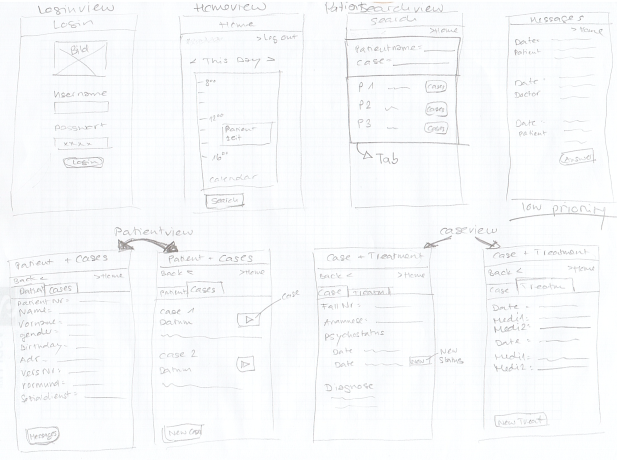 Loginview
Login
Bild
Username
Passwort
xxxx
Login
Homeview
Home
> Log out
< This Day >
8°°
12°°
Patient
16°°
calendar
Search
Patientsearchview
Search
> Home
Patientname:
case:
P1
cases
P2
cases
P3
cases
Tab
Messages
> Home
Date:
Patient
Date:
Doctor
Date
Patient
Answer
low priority
Patientview
Patient + Cases
Back <
> Home
Patient
Cases
Patient Nr:
Name:
Vorname:
gender:
Birthday:
Adr.
Vers Nr:
Vormund:
Sozialdienst:
Messages
Patient + Cases
Back <
> Home
Patient
Cases
case 1
Datum
case
case 2
Datum
New Case
caseview
Case + Treatment
Back <
> Home
Case
Treatm
Fall Nr:
Anamnese:
Psychostatus
Date
Date
New
Status
Diagnose
Case + Treatment
Back <
> Home
Case
Treatm
Date:
Medi1:
Medi2:
Date:
Medi1:
Medi2:
New Treat